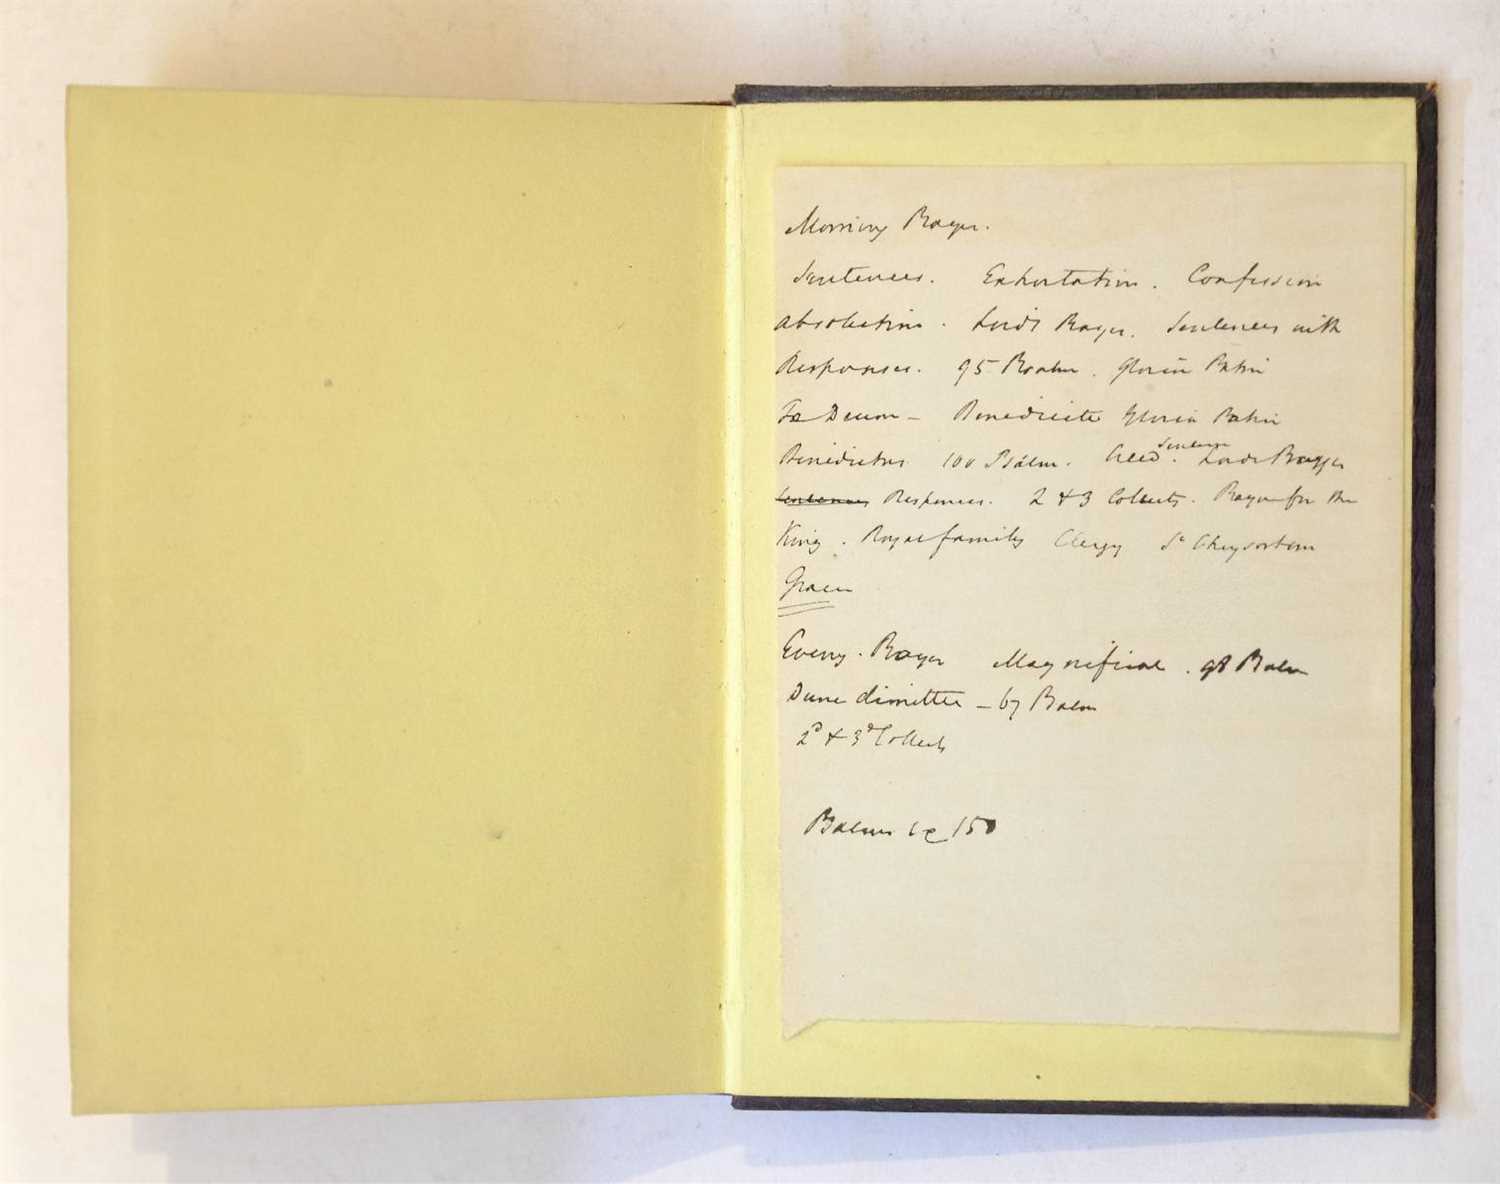 Morning Prayer.
Sentences. Exhortation. Confession
Absolution. Lords Prayer. Sentences with
Responses. 95 Psalm. Gloria Patri
Te Deum - Benedicite Gloria Patri
Benedictus 100 Psalm. Creed. Lords Prayer
Sentences Responses. 2 & 3 Collects. Prayer for the
King. Royal family Clergy St Chrysostom
Grace
Eveng. Prayer Magnificat. 98 Psalm
Nunc dimittis - 67 Psalm
2d & 3d Collects
Psalms 150